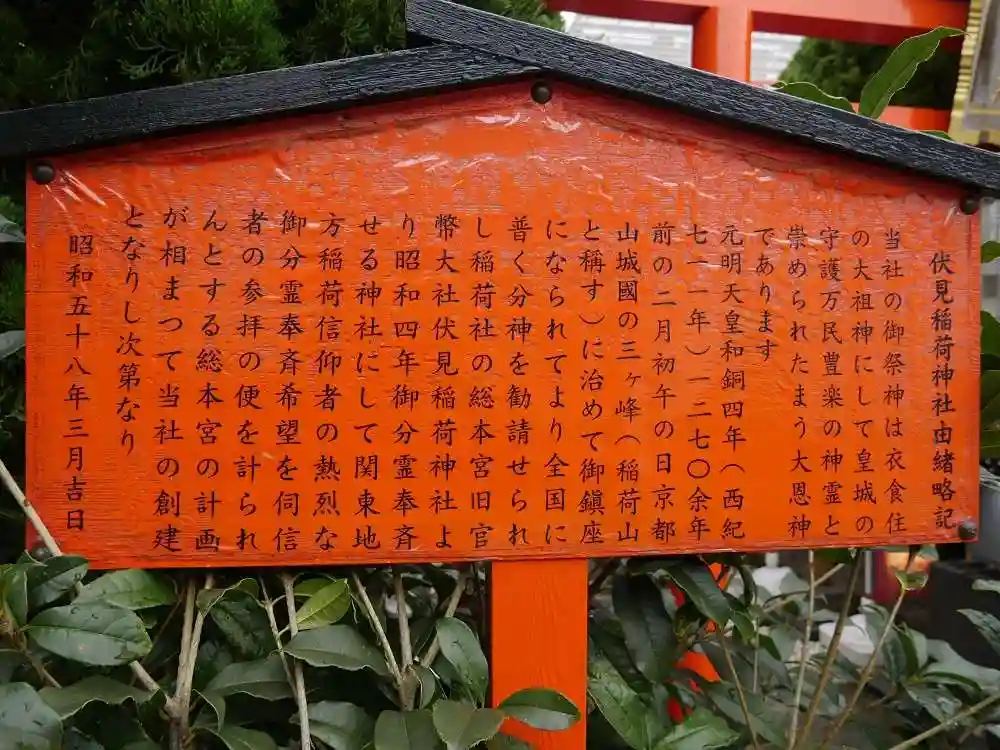 伏見稲荷神社由緒略記
当社の御祭神は衣食住
の大祖神にして皇城の
守護万民豊楽の神霊と
崇められたまう大恩神
であります
元明天皇和銅四年（西紀
七一一年）一二七〇余年
前の二月初午の日京都
山城國の三ヶ峰（稲荷山
と稱す）に治めて御鎭座
になられてより全国に
普く分神を勧請せられ
し稲荷社の総本宮旧官
幣大社伏見稲荷神社よ
り昭和四年御分霊奉斉
せる神社にして関東地
方稲荷信仰者の熱烈な
御分霊奉斉希望を伺信
者の参拝の便を計られ
んとする総本宮の計画
が相まつて当社の創建
となりし次第なり
昭和五十八年三月吉日